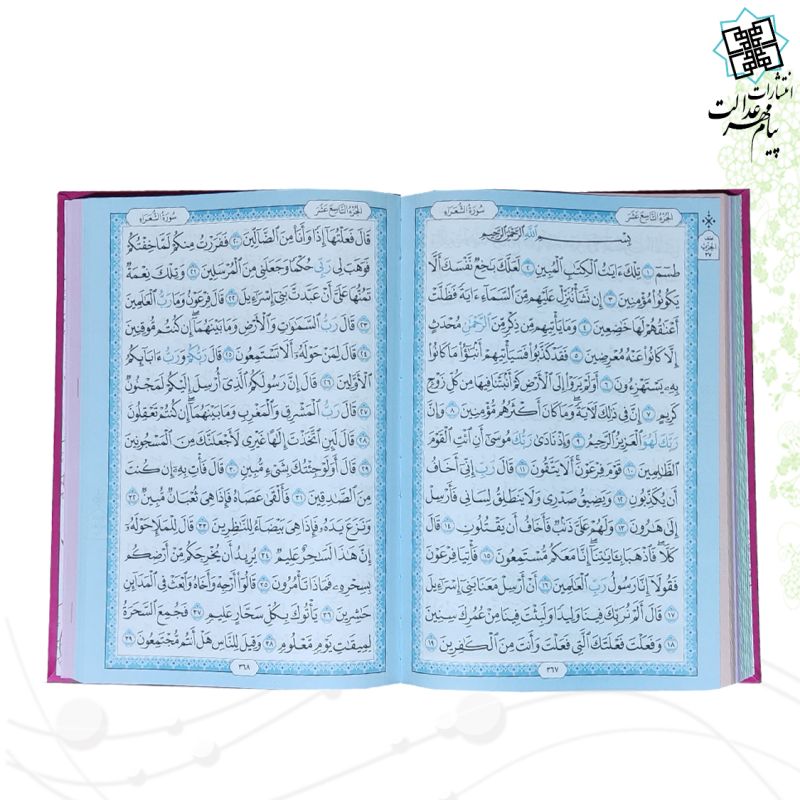 انتشارات
پیام مهر عدالت
الجزء التاسع عشر
سورة الشعراء
حزب
٣٧
بِسْمِ اللَّهِ الرَّحْمَٰنِ الرَّحِيمِ
طسٓمٓ ١ تِلْكَ ءَايَٰتُ الْكِتَٰبِ الْمُبِينِ ٢ لَعَلَّكَ بَٰخِعٌ نَّفْسَكَ أَلَّا
يَكُونُوا مُؤْمِنِينَ ٣ إِن نَّشَأْ نُنَزِّلْ عَلَيْهِم مِّنَ السَّمَآءِ ءَايَةً فَظَلَّتْ
أَعْنَٰقُهُمْ لَهَا خَٰضِعِينَ ٤ وَمَا يَأْتِيهِم مِّن ذِكْرٍ مِّنَ الرَّحْمَٰنِ مُحْدَثٍ
إِلَّا كَانُوا عَنْهُ مُعْرِضِينَ ٥ فَقَدْ كَذَّبُوا فَسَيَأْتِيهِمْ أَنۢبَٰٓؤُا مَا كَانُوا
بِهِ يَسْتَهْزِءُونَ ٦ أَوَلَمْ يَرَوْا إِلَى الْأَرْضِ كَمْ أَنۢبَتْنَا فِيهَا مِن كُلِّ زَوْجٍ
كَرِيمٍ ٧ إِنَّ فِي ذَٰلِكَ لَءَايَةً وَمَا كَانَ أَكْثَرُهُم مُّؤْمِنِينَ ٨ وَإِنَّ
رَبَّكَ لَهُوَ الْعَزِيزُ الرَّحِيمُ ٩ وَإِذْ نَادَىٰ رَبُّكَ مُوسَىٰٓ أَنِ ائْتِ الْقَوْمَ
الظَّٰلِمِينَ ١٠ قَوْمَ فِرْعَوْنَ أَلَا يَتَّقُونَ ١١ قَالَ رَبِّ إِنِّيٓ أَخَافُ
أَن يُكَذِّبُونِ ١٢ وَيَضِيقُ صَدْرِي وَلَا يَنطَلِقُ لِسَانِي فَأَرْسِلْ
إِلَىٰ هَٰرُونَ ١٣ وَلَهُمْ عَلَيَّ ذَنۢبٌ فَأَخَافُ أَن يَقْتُلُونِ ١٤ قَالَ
كَلَّا فَاذْهَبَا بِـَٔايَٰتِنَآ إِنَّا مَعَكُم مُّسْتَمِعُونَ ١٥ فَأْتِيَا فِرْعَوْنَ
فَقُولَآ إِنَّا رَسُولُ رَبِّ الْعَٰلَمِينَ ١٦ أَنْ أَرْسِلْ مَعَنَا بَنِيٓ إِسْرَٰٓءِيلَ
١٧ قَالَ أَلَمْ نُرَبِّكَ فِينَا وَلِيدًا وَلَبِثْتَ فِينَا مِنْ عُمُرِكَ سِنِينَ
١٨ وَفَعَلْتَ فَعْلَتَكَ الَّتِي فَعَلْتَ وَأَنتَ مِنَ الْكَٰفِرِينَ ١٩
٣٦٧
الجزء التاسع عشر
سورة الشعراء
قَالَ فَعَلْتُهَآ إِذًا وَأَنَا مِنَ الضَّآلِّينَ ٢٠ فَفَرَرْتُ مِنكُمْ لَمَّا خِفْتُكُمْ
فَوَهَبَ لِي رَبِّي حُكْمًا وَجَعَلَنِي مِنَ الْمُرْسَلِينَ ٢١ وَتِلْكَ نِعْمَةٌ
تَمُنُّهَا عَلَيَّ أَنْ عَبَّدتَّ بَنِيٓ إِسْرَٰٓءِيلَ ٢٢ قَالَ فِرْعَوْنُ وَمَا رَبُّ الْعَٰلَمِينَ
٢٣ قَالَ رَبُّ السَّمَٰوَٰتِ وَالْأَرْضِ وَمَا بَيْنَهُمَآ إِن كُنتُم مُّوقِنِينَ
٢٤ قَالَ لِمَنْ حَوْلَهُ أَلَا تَسْتَمِعُونَ ٢٥ قَالَ رَبُّكُمْ وَرَبُّ ءَابَآئِكُمُ
الْأَوَّلِينَ ٢٦ قَالَ إِنَّ رَسُولَكُمُ الَّذِيٓ أُرْسِلَ إِلَيْكُمْ لَمَجْنُونٌ
٢٧ قَالَ رَبُّ الْمَشْرِقِ وَالْمَغْرِبِ وَمَا بَيْنَهُمَآ إِن كُنتُمْ تَعْقِلُونَ
٢٨ قَالَ لَئِنِ اتَّخَذْتَ إِلَٰهًا غَيْرِي لَأَجْعَلَنَّكَ مِنَ الْمَسْجُونِينَ
٢٩ قَالَ أَوَلَوْ جِئْتُكَ بِشَيْءٍ مُّبِينٍ ٣٠ قَالَ فَأْتِ بِهِ إِن كُنتَ
مِنَ الصَّٰدِقِينَ ٣١ فَأَلْقَىٰ عَصَاهُ فَإِذَا هِيَ ثُعْبَانٌ مُّبِينٌ ٣٢
وَنَزَعَ يَدَهُ فَإِذَا هِيَ بَيْضَآءُ لِلنَّٰظِرِينَ ٣٣ قَالَ لِلْمَلَإِ حَوْلَهُ
إِنَّ هَٰذَا لَسَٰحِرٌ عَلِيمٌ ٣٤ يُرِيدُ أَن يُخْرِجَكُم مِّنْ أَرْضِكُم
بِسِحْرِهِ فَمَاذَا تَأْمُرُونَ ٣٥ قَالُوٓا أَرْجِهْ وَأَخَاهُ وَابْعَثْ فِي الْمَدَآئِنِ
حَٰشِرِينَ ٣٦ يَأْتُوكَ بِكُلِّ سَحَّارٍ عَلِيمٍ ٣٧ فَجُمِعَ السَّحَرَةُ
لِمِيقَٰتِ يَوْمٍ مَّعْلُومٍ ٣٨ وَقِيلَ لِلنَّاسِ هَلْ أَنتُم مُّجْتَمِعُونَ ٣٩
٣٦٨